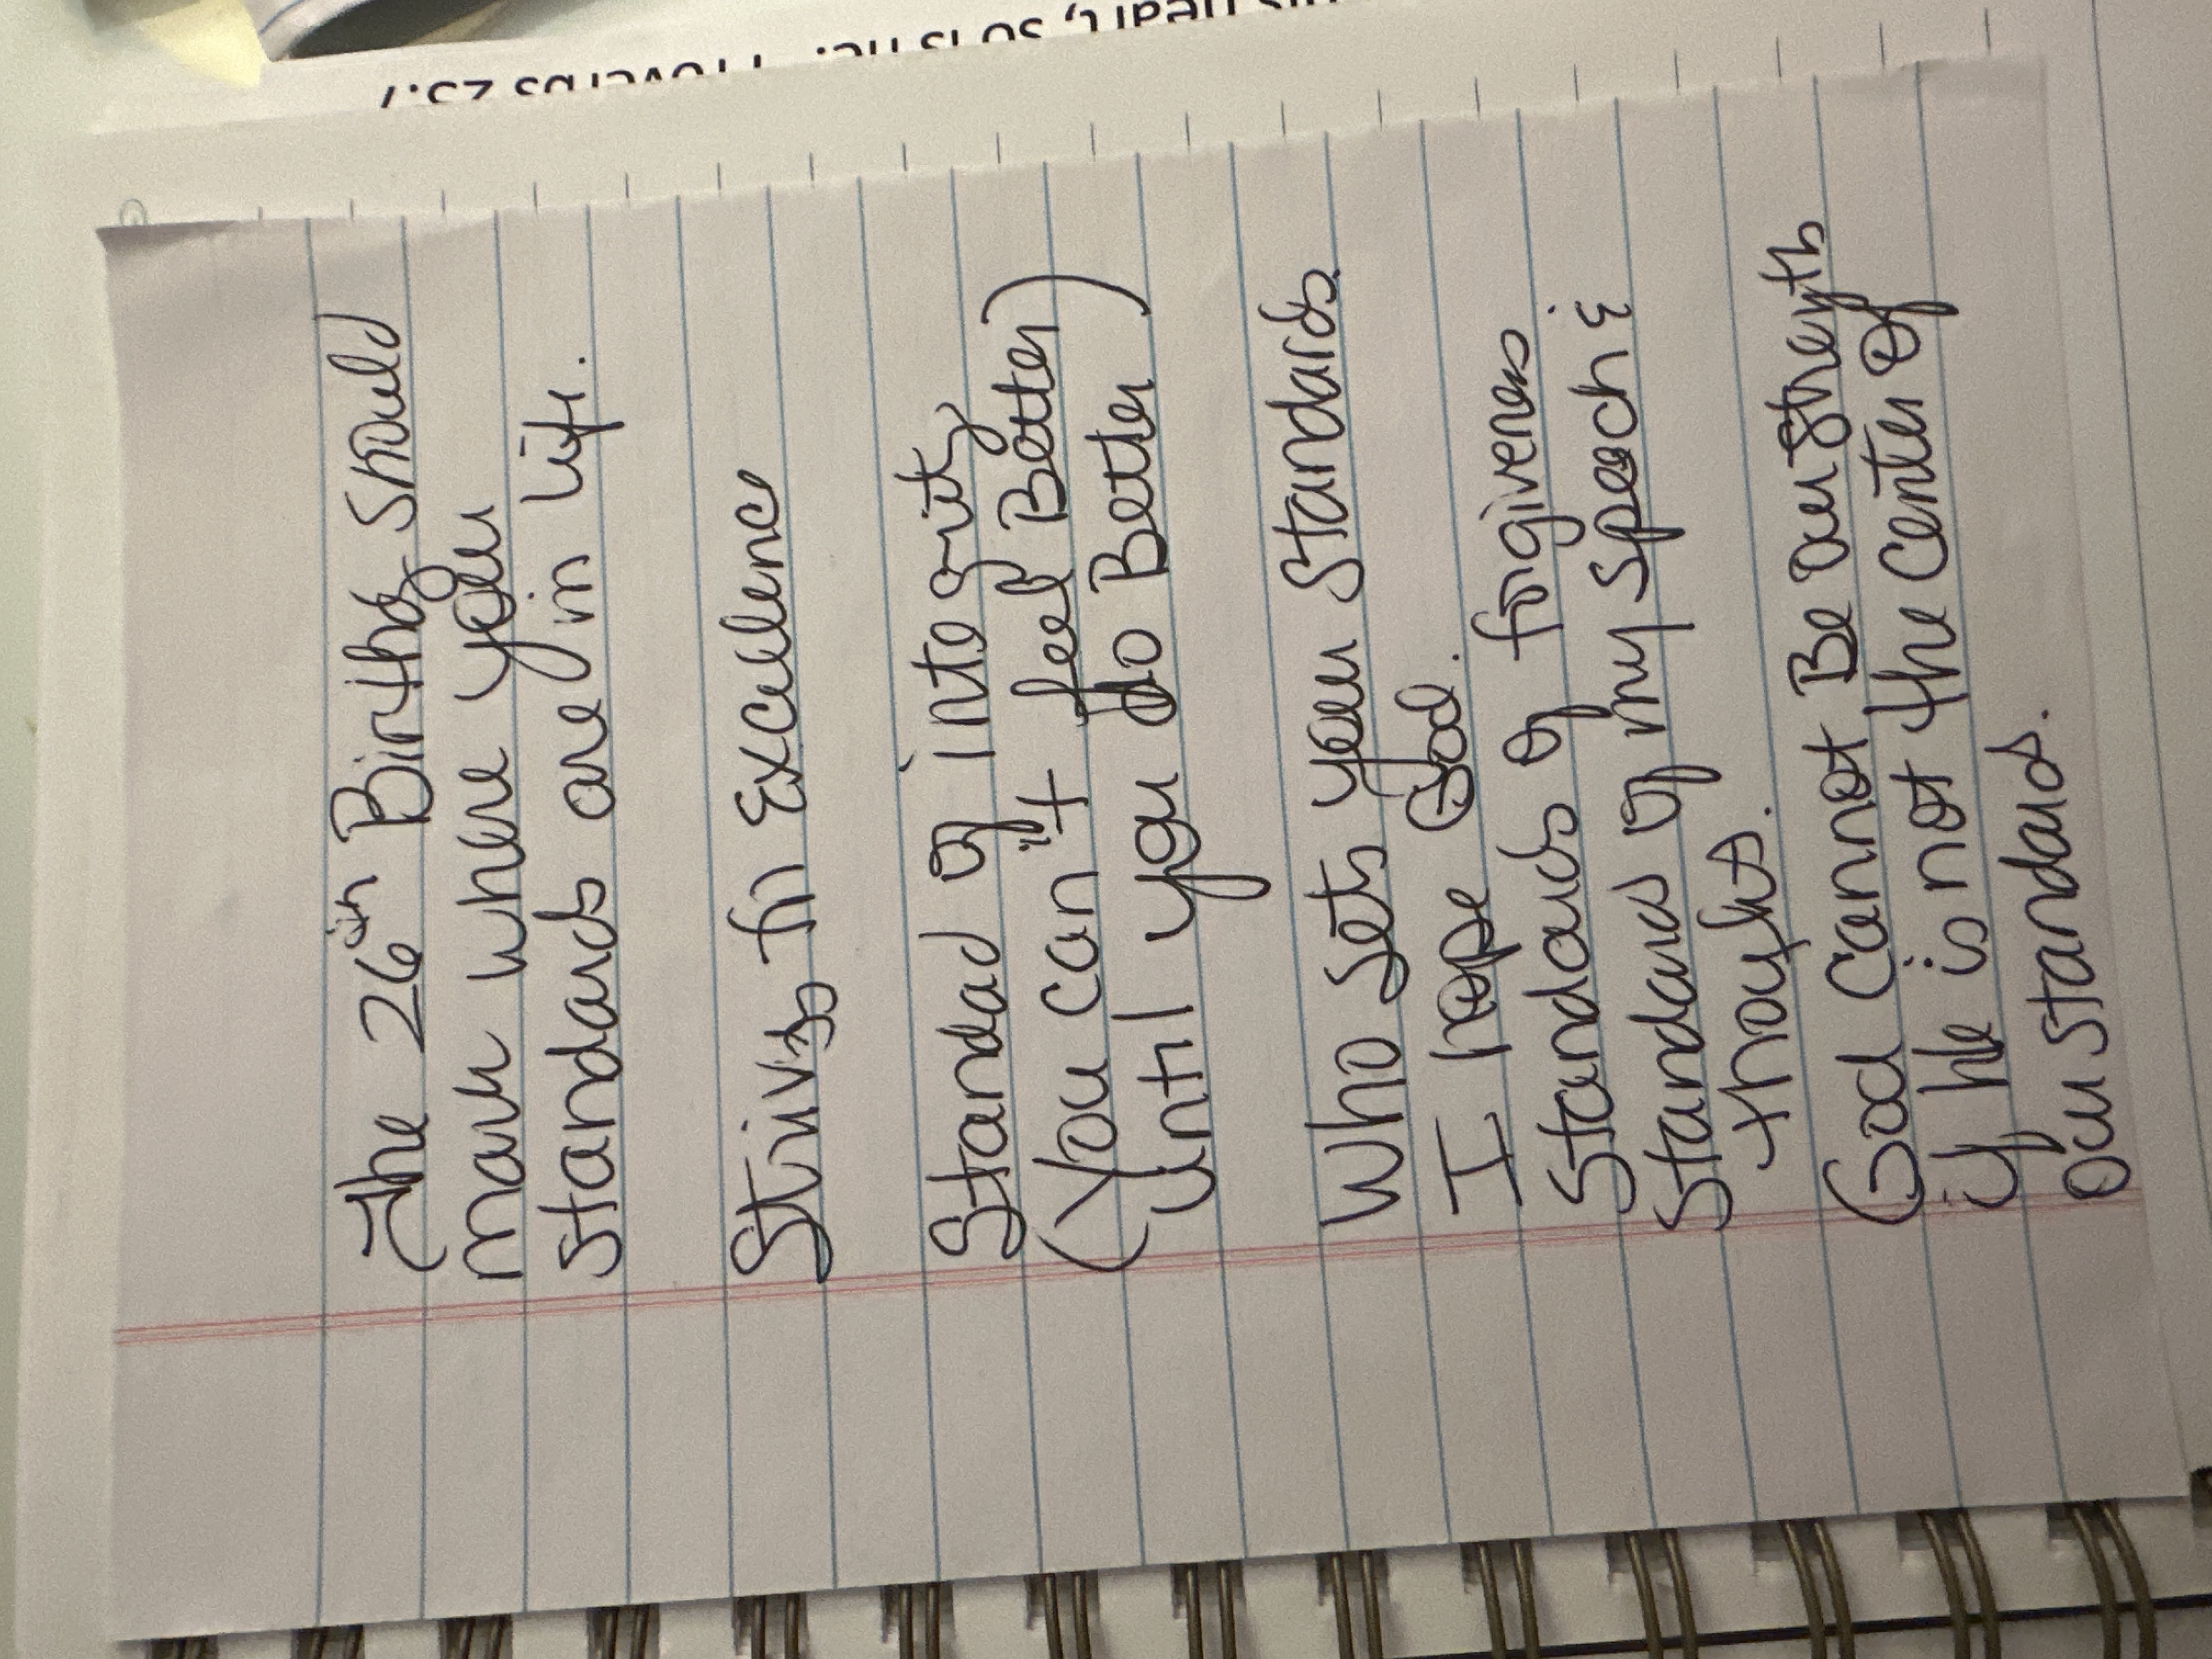 The 26th Birthday should
mark where your
standards are in life.
Strives for Excellence
Standad of integrity
(You can't feel Better)
until you do Better
Who sets your standards.
I hope God.
Standards of forgiveness
Standards of my speech &
thoughts.
God cannot Be our strength
if He is not the center of
our standards.